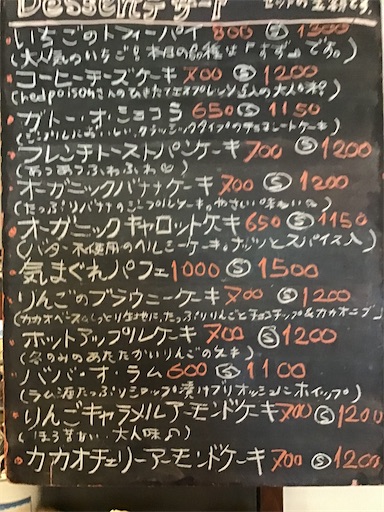 Dessert デザート
いちごのトフィーパイ 800 Ⓢ 1300
(大人気のいちご! 本日の品種は「すず」です。)
コーヒーチーズケーキ 700 Ⓢ 1200
ガトー・オ・ショコラ 650 Ⓢ 1150
フレンチトーストパンケーキ 700 Ⓢ 1200
(あつあつふわふわ♡)
オーガニックバナナケーキ 700 Ⓢ 1200
(たっぷりバナナのシンプルケーキ。やさしい味わい)
オーガニックキャロットケーキ 650 Ⓢ 1150
(バター不使用のヘルシーケーキ。ナッツとスパイス入)
気まぐれパフェ 1000 Ⓢ 1500
りんごのブラウニーケーキ 700 Ⓢ 1200
(カカオベースのしっとり生地に、たっぷりりんごとチョコチップ&カカオニブ)
ホットアップルケーキ 700 Ⓢ 1200
(冬のみのあたたかいりんごのケーキ)
ババ・オ・ラム 600 Ⓢ 1100
(ラム酒たっぷりシロップ漬けブリオッシュにホイップ)
りんごキャラメルアーモンドケーキ 700 Ⓢ 1200
(ほろ苦かい大人味♪)
カカオチェリーアーモンドケーキ 700 Ⓢ 1200